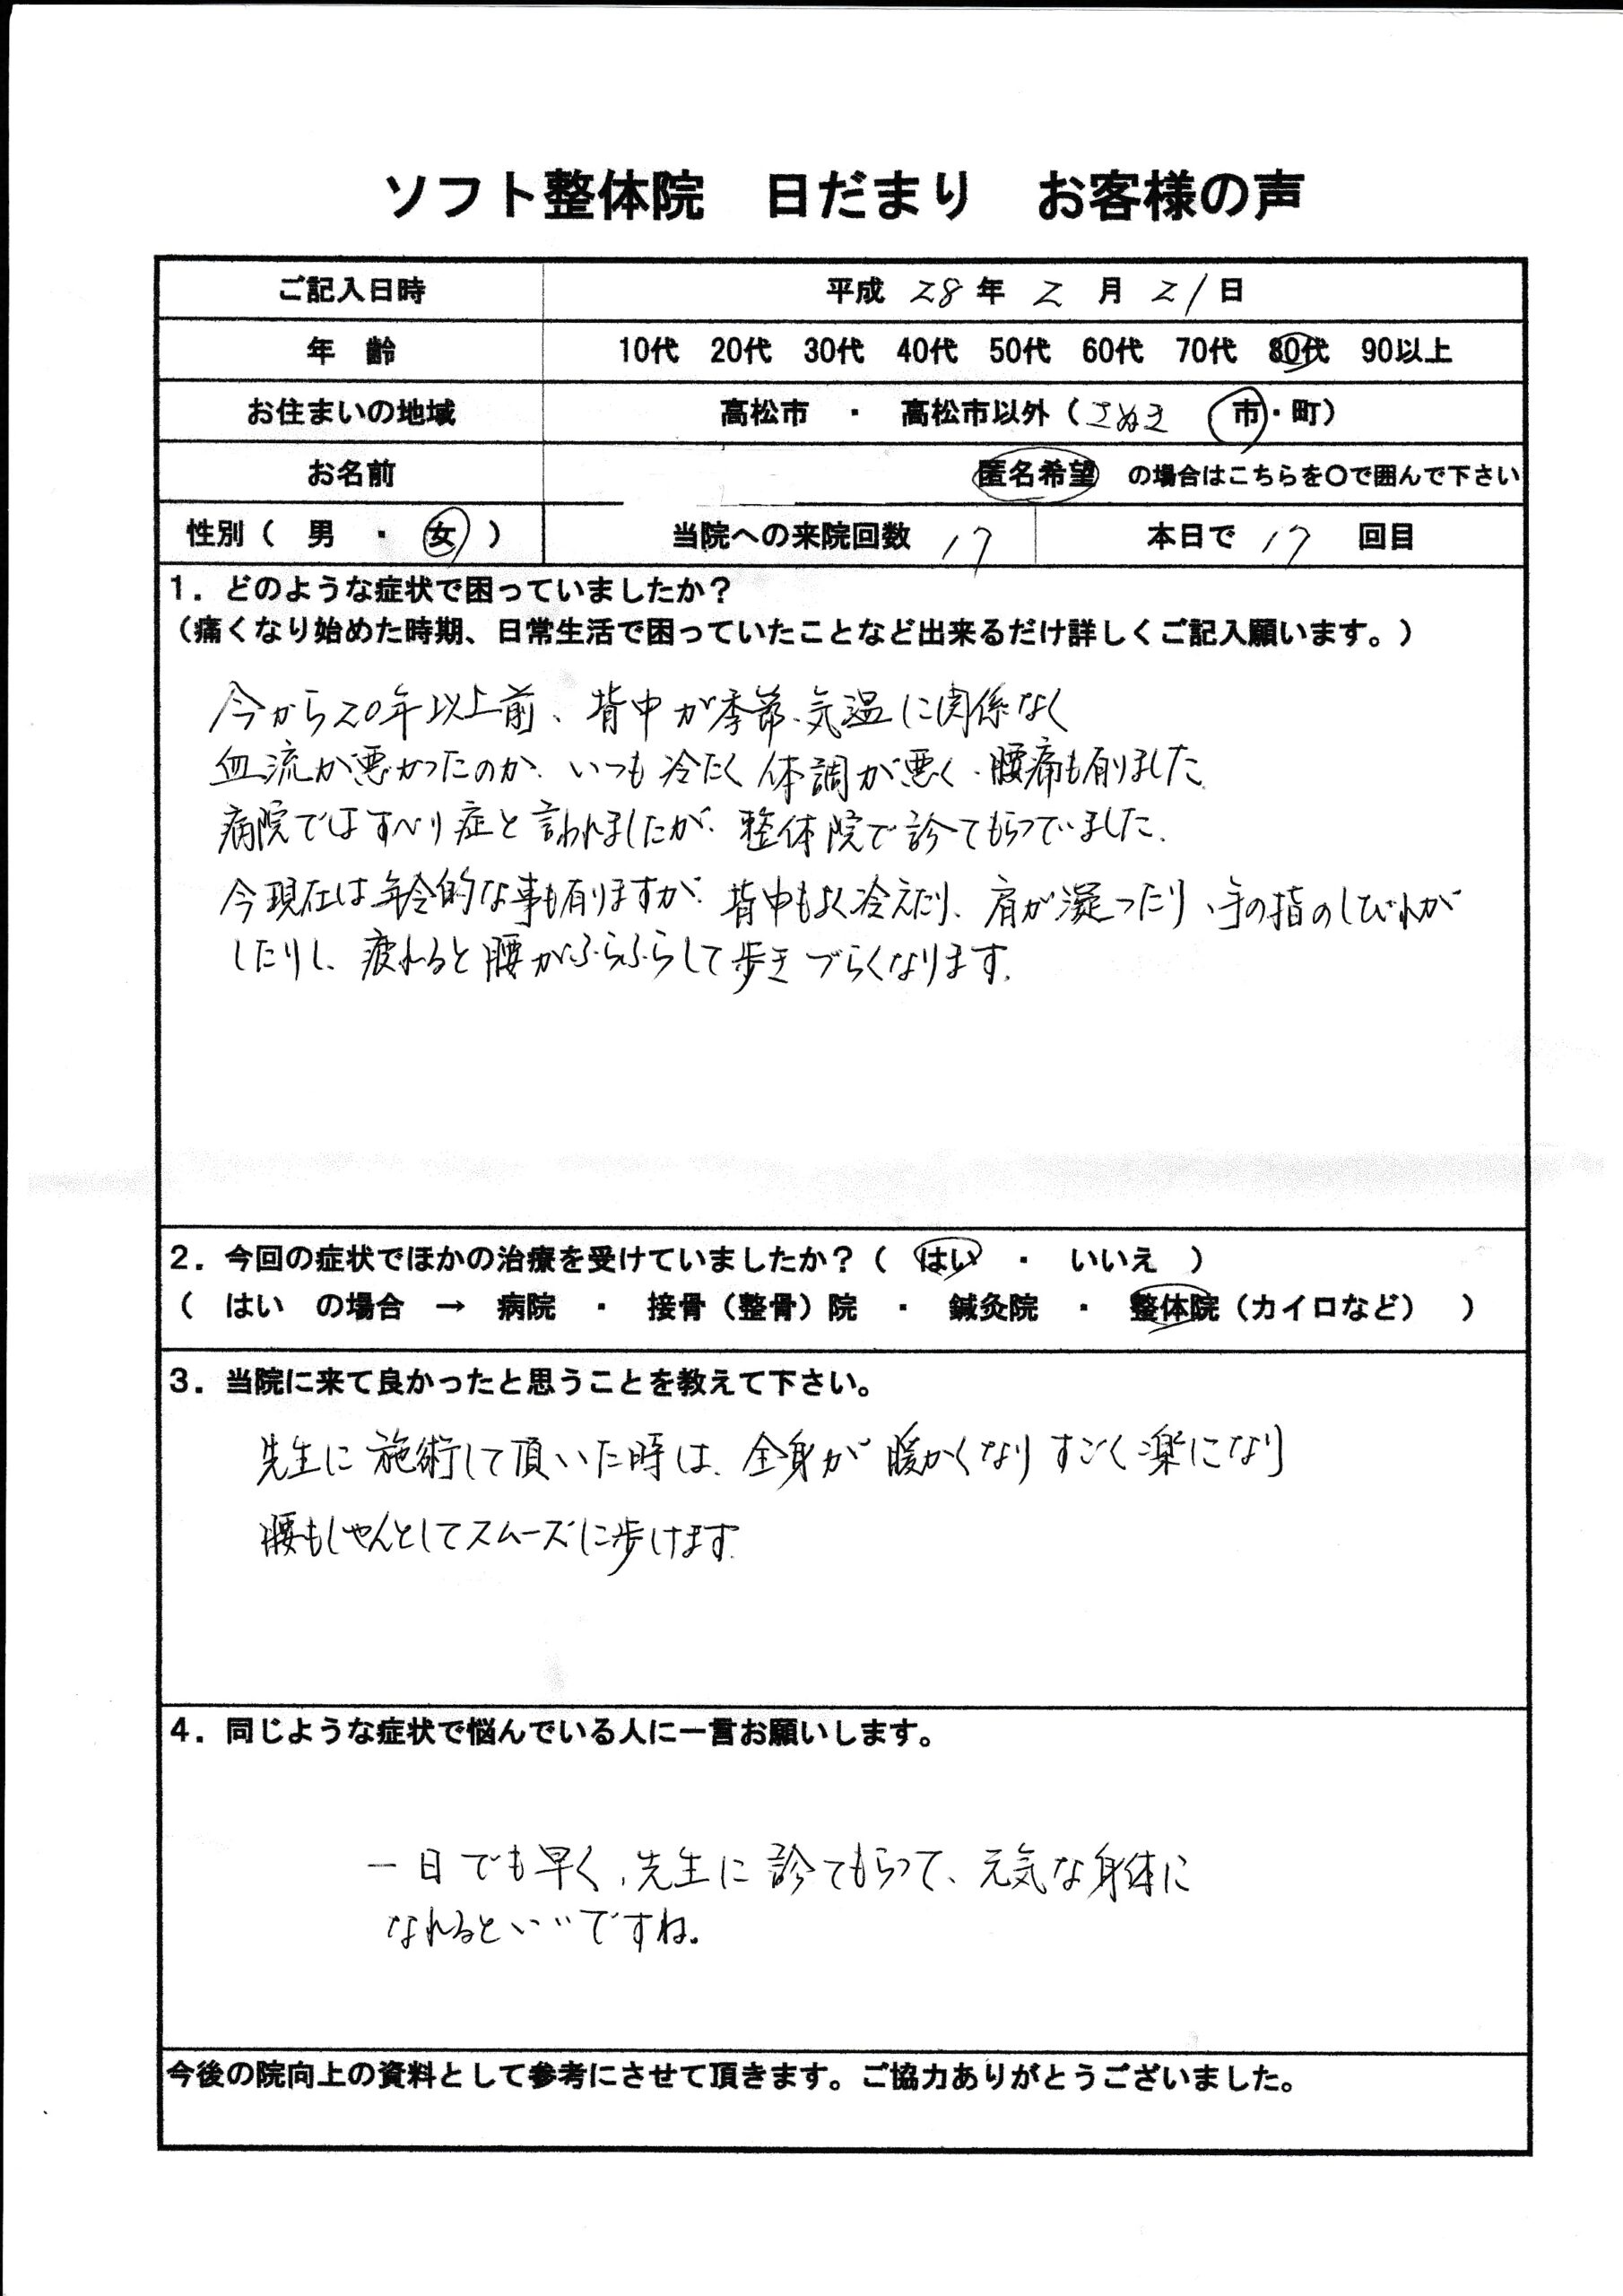 ソフト整体院　日だまり　お客様の声
ご記入日時　平成 28 年 2 月 21 日
年　齢　10代　20代　30代　40代　50代　60代　70代　80代　90以上
お住まいの地域　高松市　・　高松市以外（さぬき　市・町）
お名前　匿名希望　の場合はこちらを〇で囲んで下さい
性別（　男　・　女　）　当院への来院回数　17　本日で　17　回目
1．どのような症状で困っていましたか？
（痛くなり始めた時期、日常生活で困っていたことなど出来るだけ詳しくご記入願います。）
今から20年以上前、背中が季節、気温に関係なく
血流が悪かったのか、いつも冷たく体調が悪く、腰痛も有りました。
病院ではすべり症と言われましたが、整体院で診てもらっていました。
今現在は年令的な事も有りますが、背中もよく冷えたり、肩が凝ったり、手の指のしびれが
したりし、疲れると腰がふらふらして歩きづらくなります。
2．今回の症状でほかの治療を受けていましたか？（　はい　・　いいえ　）
（　はい　の場合　→　病院　・　接骨（整骨）院　・　鍼灸院　・　整体院（カイロなど）　）
3．当院に来て良かったと思うことを教えて下さい。
先生に施術して頂いた時は、全身が暖かくなりすごく楽になり
腰もしゃんとしてスムーズに歩けます。
4．同じような症状で悩んでいる人に一言お願いします。
一日でも早く、先生に診てもらって、元気な身体に
なれるといいですね。
今後の院向上の資料として参考にさせて頂きます。ご協力ありがとうございました。